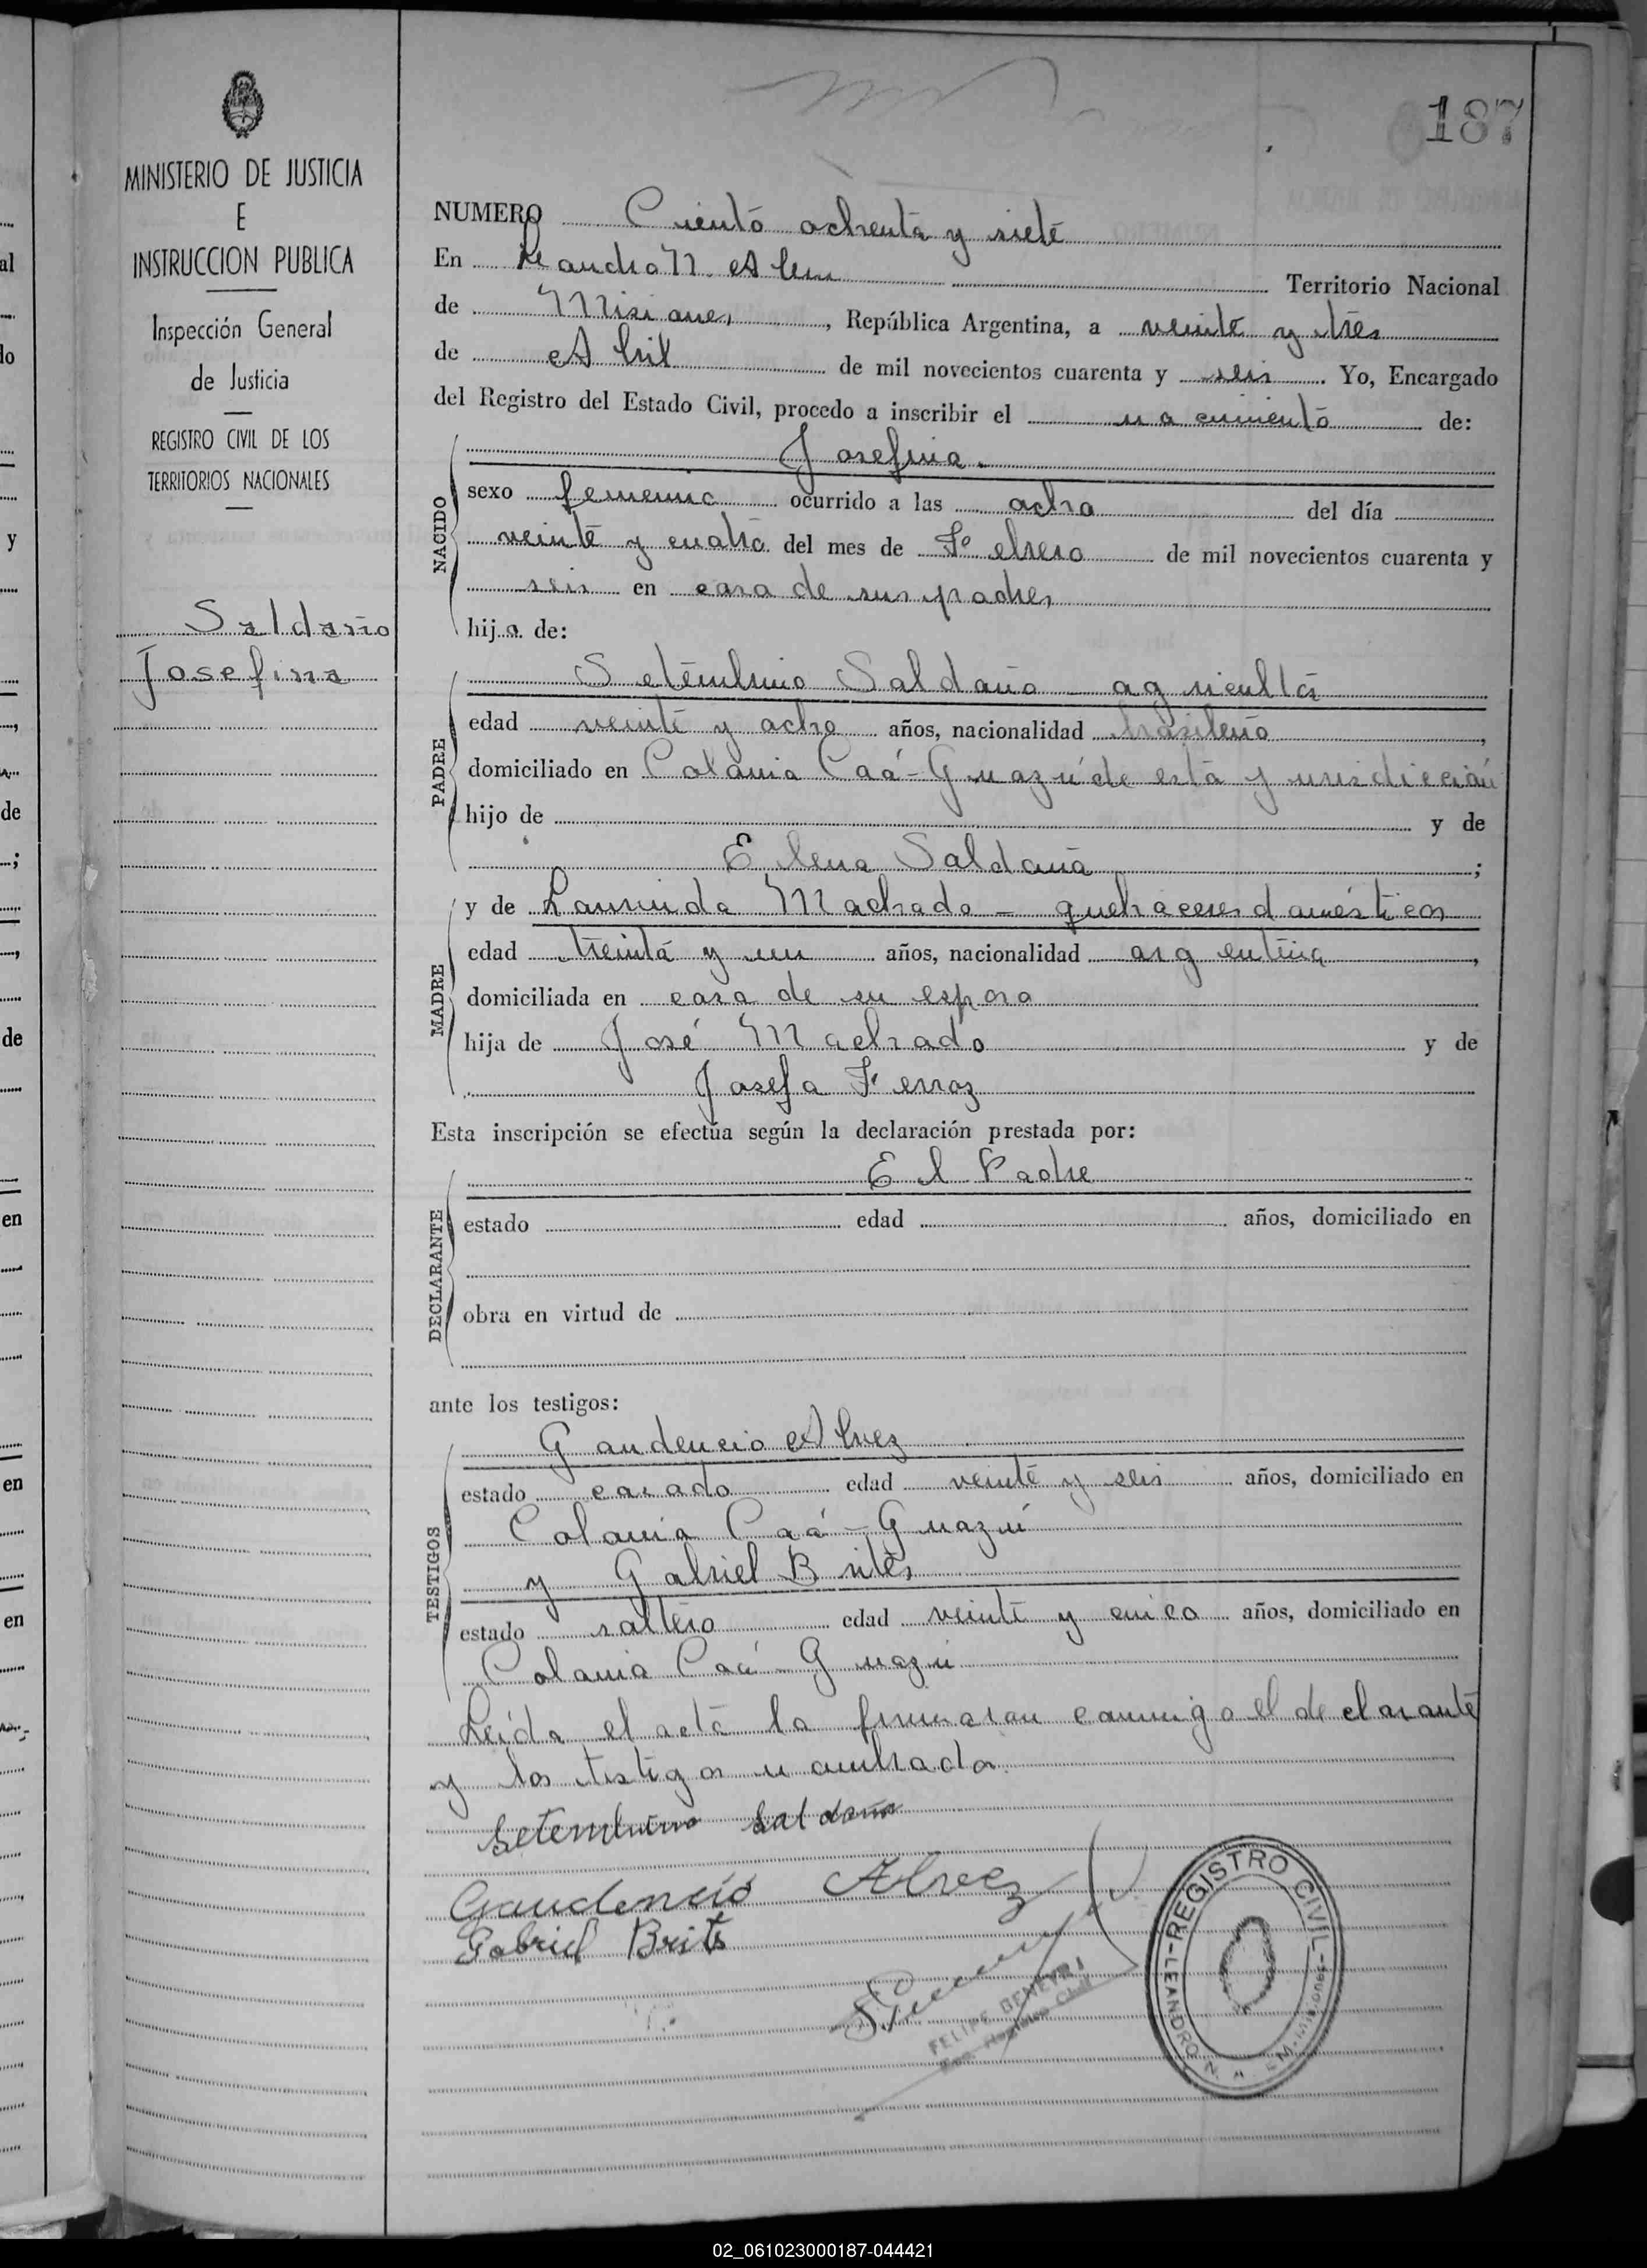 187
MINISTERIO DE JUSTICIA
E
INSTRUCCION PUBLICA
Inspección General
de Justicia
REGISTRO CIVIL DE LOS
TERRITORIOS NACIONALES
Saldaño
Josefina
NUMERO Ciento ochenta y siete
En Leandro N. Alem Territorio Nacional
de Misiones, República Argentina, a veinte y tres
de Abril de mil novecientos cuarenta y seis. Yo, Encargado
del Registro del Estado Civil, procedo a inscribir el nacimiento de:
Josefina.
NACIDO
sexo femenino ocurrido a las ocho del día
veinte y cuatro del mes de Febrero de mil novecientos cuarenta y
seis en casa de sus padres
hija de:
PADRE
Setembrino Saldaño - agricultor
edad veinte y ocho años, nacionalidad brasileño,
domiciliado en Colonia Caá-Guazú de esta jurisdicción
hijo de y de
Elena Saldaña;
MADRE
y de Laurinda Machado - quehaceres domésticos
edad treinta y un años, nacionalidad argentina,
domiciliada en casa de su esposo
hija de José Machado y de
Josefa Ferraz
Esta inscripción se efectúa según la declaración prestada por:
DECLARANTE
El Padre
estado edad años, domiciliado en
obra en virtud de
ante los testigos:
TESTIGOS
Gaudencio Alvez
estado casado edad veinte y seis años, domiciliado en
Colonia Caá-Guazú
y Gabriel Brites
estado soltero edad veinte y cinco años, domiciliado en
Colonia Caá-Guazú
Leída el acta la firmaron conmigo el declarante
y los testigos nombrados.
Setembrino Saldaña
Gaudencio Alvez
Gabriel Brites
FELIPE BENEYRI
Enc. Registro Civil
REGISTRO CIVIL
LEANDRO N. A
Misiones
02_061023000187-044421